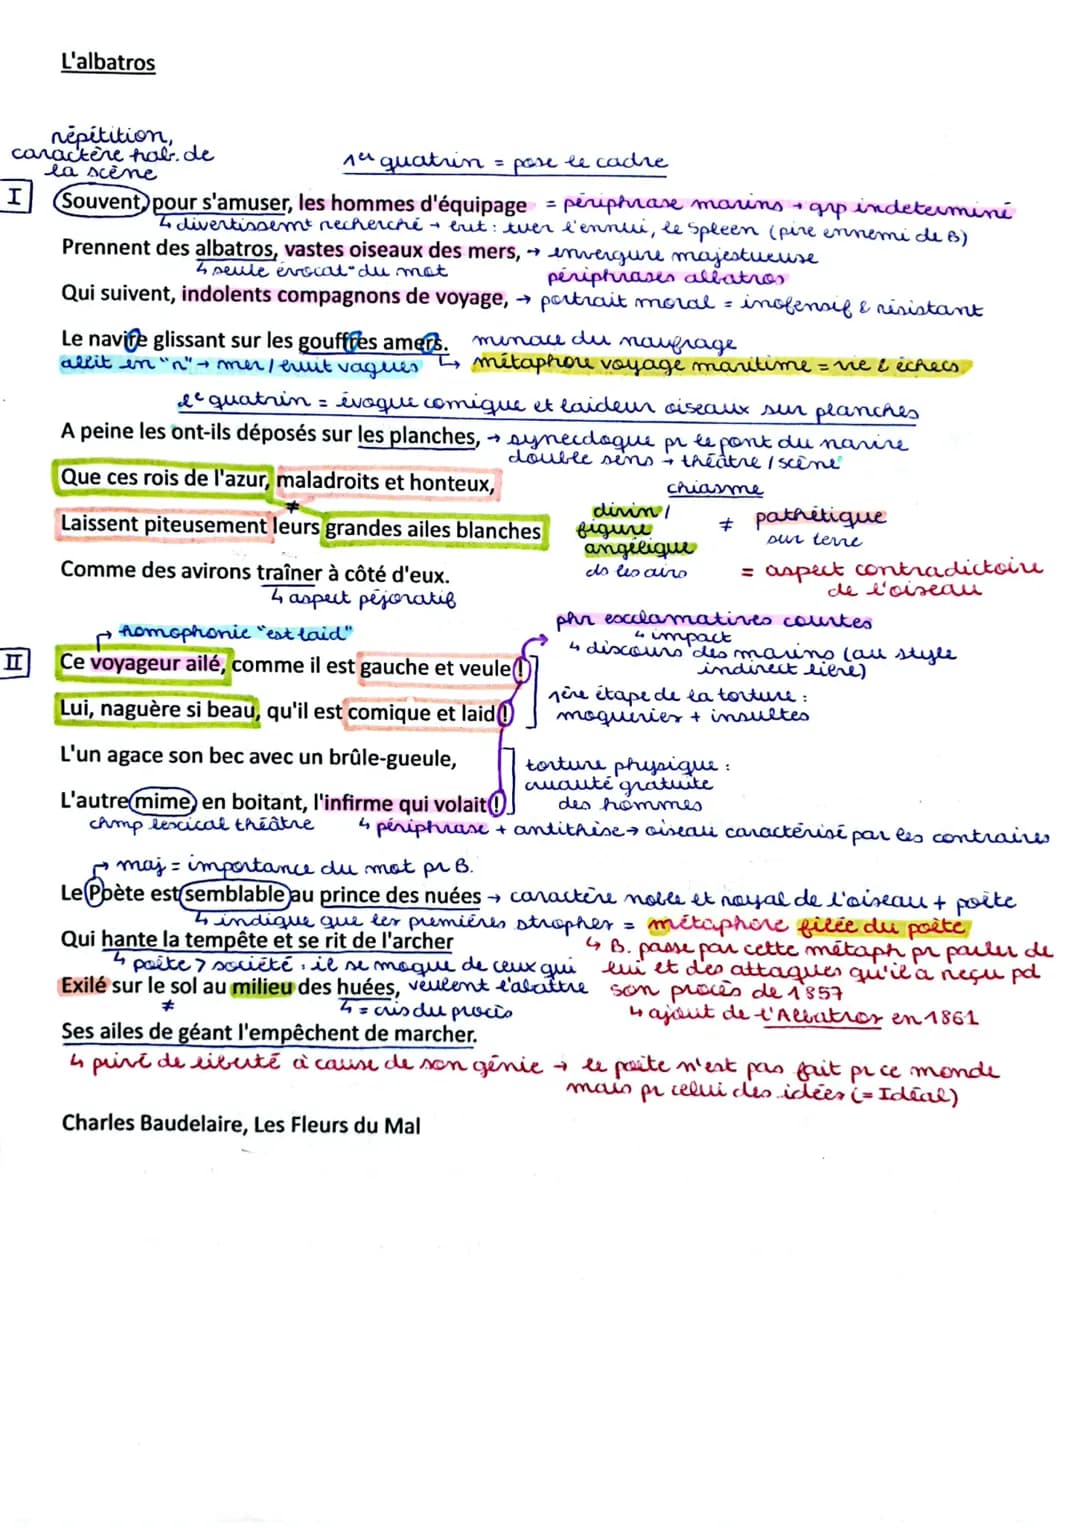 L'albatros
répétition,
caractère hab. de
la scène
1er quatrin = pose le cadre
I
Souvent, pour s'amuser, les hommes d'équipage = périphrase marins → grp indeterminé
↳ divertissemt recherché → but : tuer l'ennui, le Spleen (pire ennemi de B)
Prennent des albatros, vastes oiseaux des mers, → envergure majestueuse
↳ seule évocat° du mot périphrases albatros
Qui suivent, indolents compagnons de voyage, → portrait moral = inofensif & résistant
Le navire glissant sur les gouffres amers. menace du naufrage
allit en "r" → mer / bruit vagues ↳ métaphore voyage maritime = vie & échecs
2e quatrin = évoque comique et laideur oiseaux sur planches
A peine les ont-ils déposés sur les planches, → synecdoque pr le pont du navire
double sens → théâtre / scène
Que ces rois de l'azur, maladroits et honteux,
chiasme
≠
Laissent piteusement leurs grandes ailes blanches
divin / figure angélique ds les airs ≠ pathétique sur terre
Comme des avirons traîner à côté d'eux. = aspect contradictoire de l'oiseau
↳ aspect péjoratif
phr exclamatives courtes
↳ impact
↳ discours des marins (au style indirect libre)
homophonie "est laid"
II
Ce voyageur ailé, comme il est gauche et veule !
Lui, naguère si beau, qu'il est comique et laid !
1ère étape de la torture :
moqueries + insultes
L'un agace son bec avec un brûle-gueule,
torture physique :
cruauté gratuite
des hommes
L'autre mime, en boitant, l'infirme qui volait !
chmp lexical théâtre ↳ périphrase + antithèse → oiseau caractérisé par les contraires
→ maj = importance du mot pr B.
Le Poète est semblable au prince des nuées → caractère noble et royal de l'oiseau + poète
↳ indique que les premières strophes = métaphore filée du poète
Qui hante la tempête et se rit de l'archer
↳ B. passe par cette métaph pr parler de
↳ poète > société : il se moque de ceux qui veulent l'abattre
lui et des attaques qu'il a reçu pd
Exilé sur le sol au milieu des huées,
son procès de 1857
≠ ↳ = cris du procès
↳ ajout de l'Albatros en 1861
Ses ailes de géant l'empêchent de marcher.
↳ privé de liberté à cause de son génie → le poète n'est pas fait pr ce monde
mais pr celui des idées (= Idéal)
Charles Baudelaire, Les Fleurs du Mal